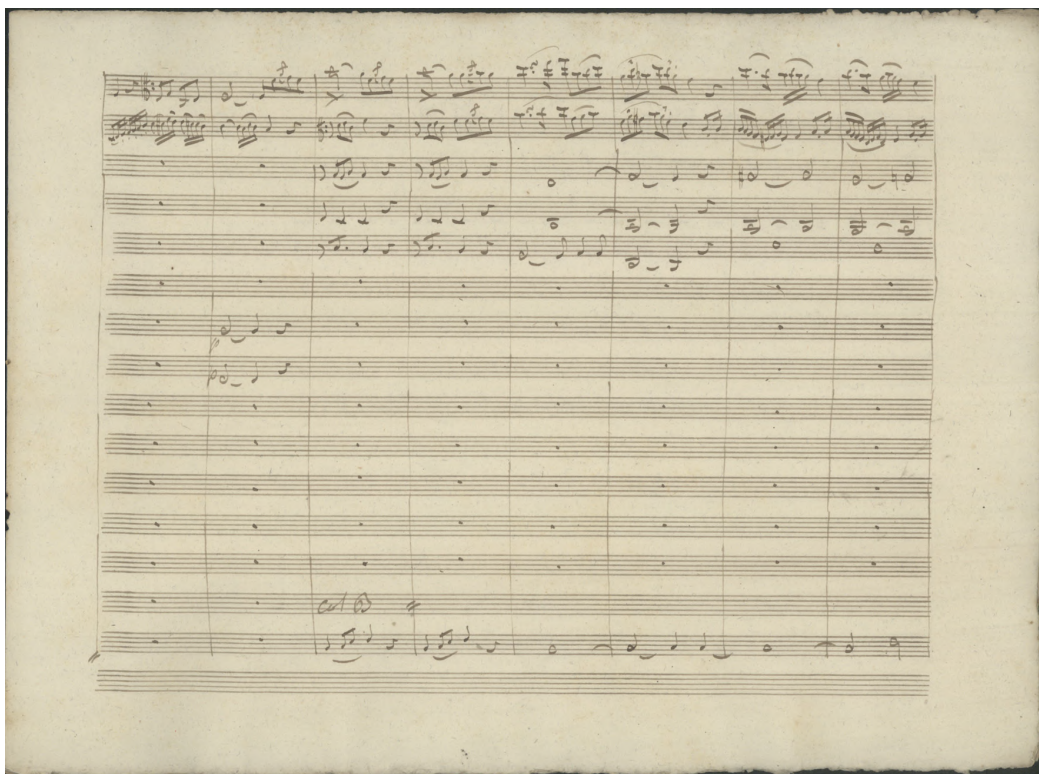 col B